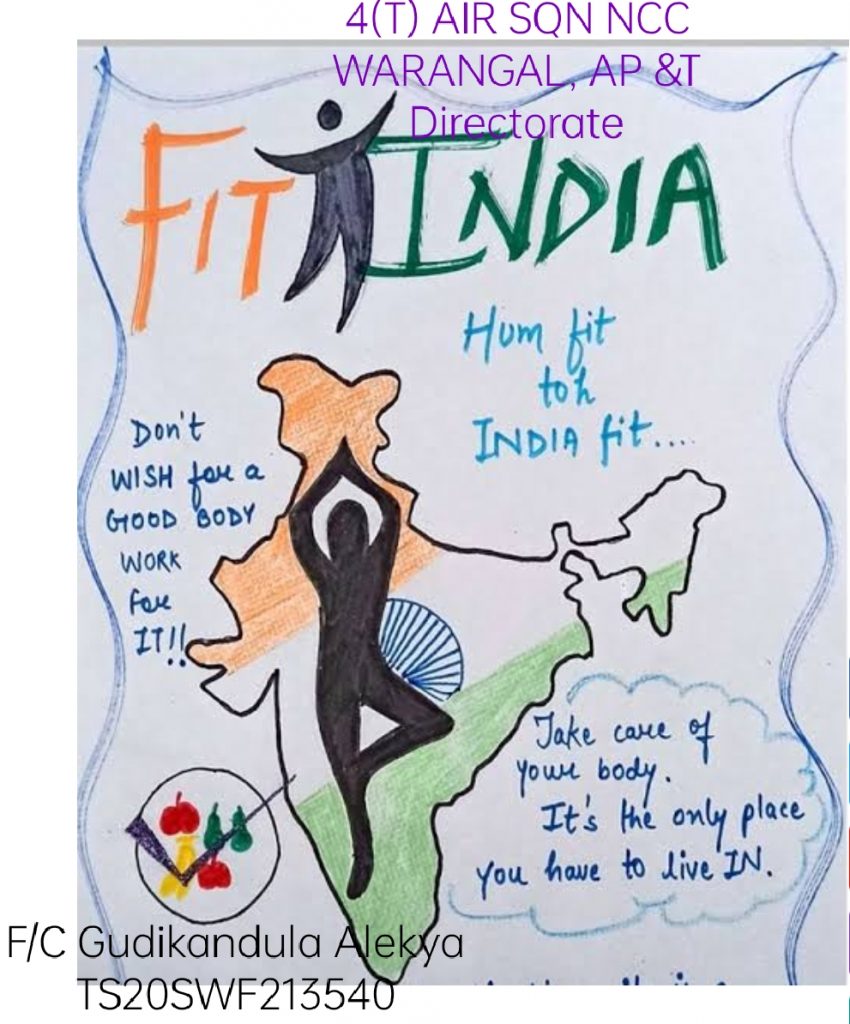 4(T) AIR SQN NCC
WARANGAL, AP &T
Directorate
FIT INDIA
Hum fit
toh
INDIA fit....
Don't
WISH for a
GOOD BODY
WORK
for
IT!!
Take care of
your body.
It's the only place
you have to live IN.
F/C Gudikandula Alekya
TS20SWF213540